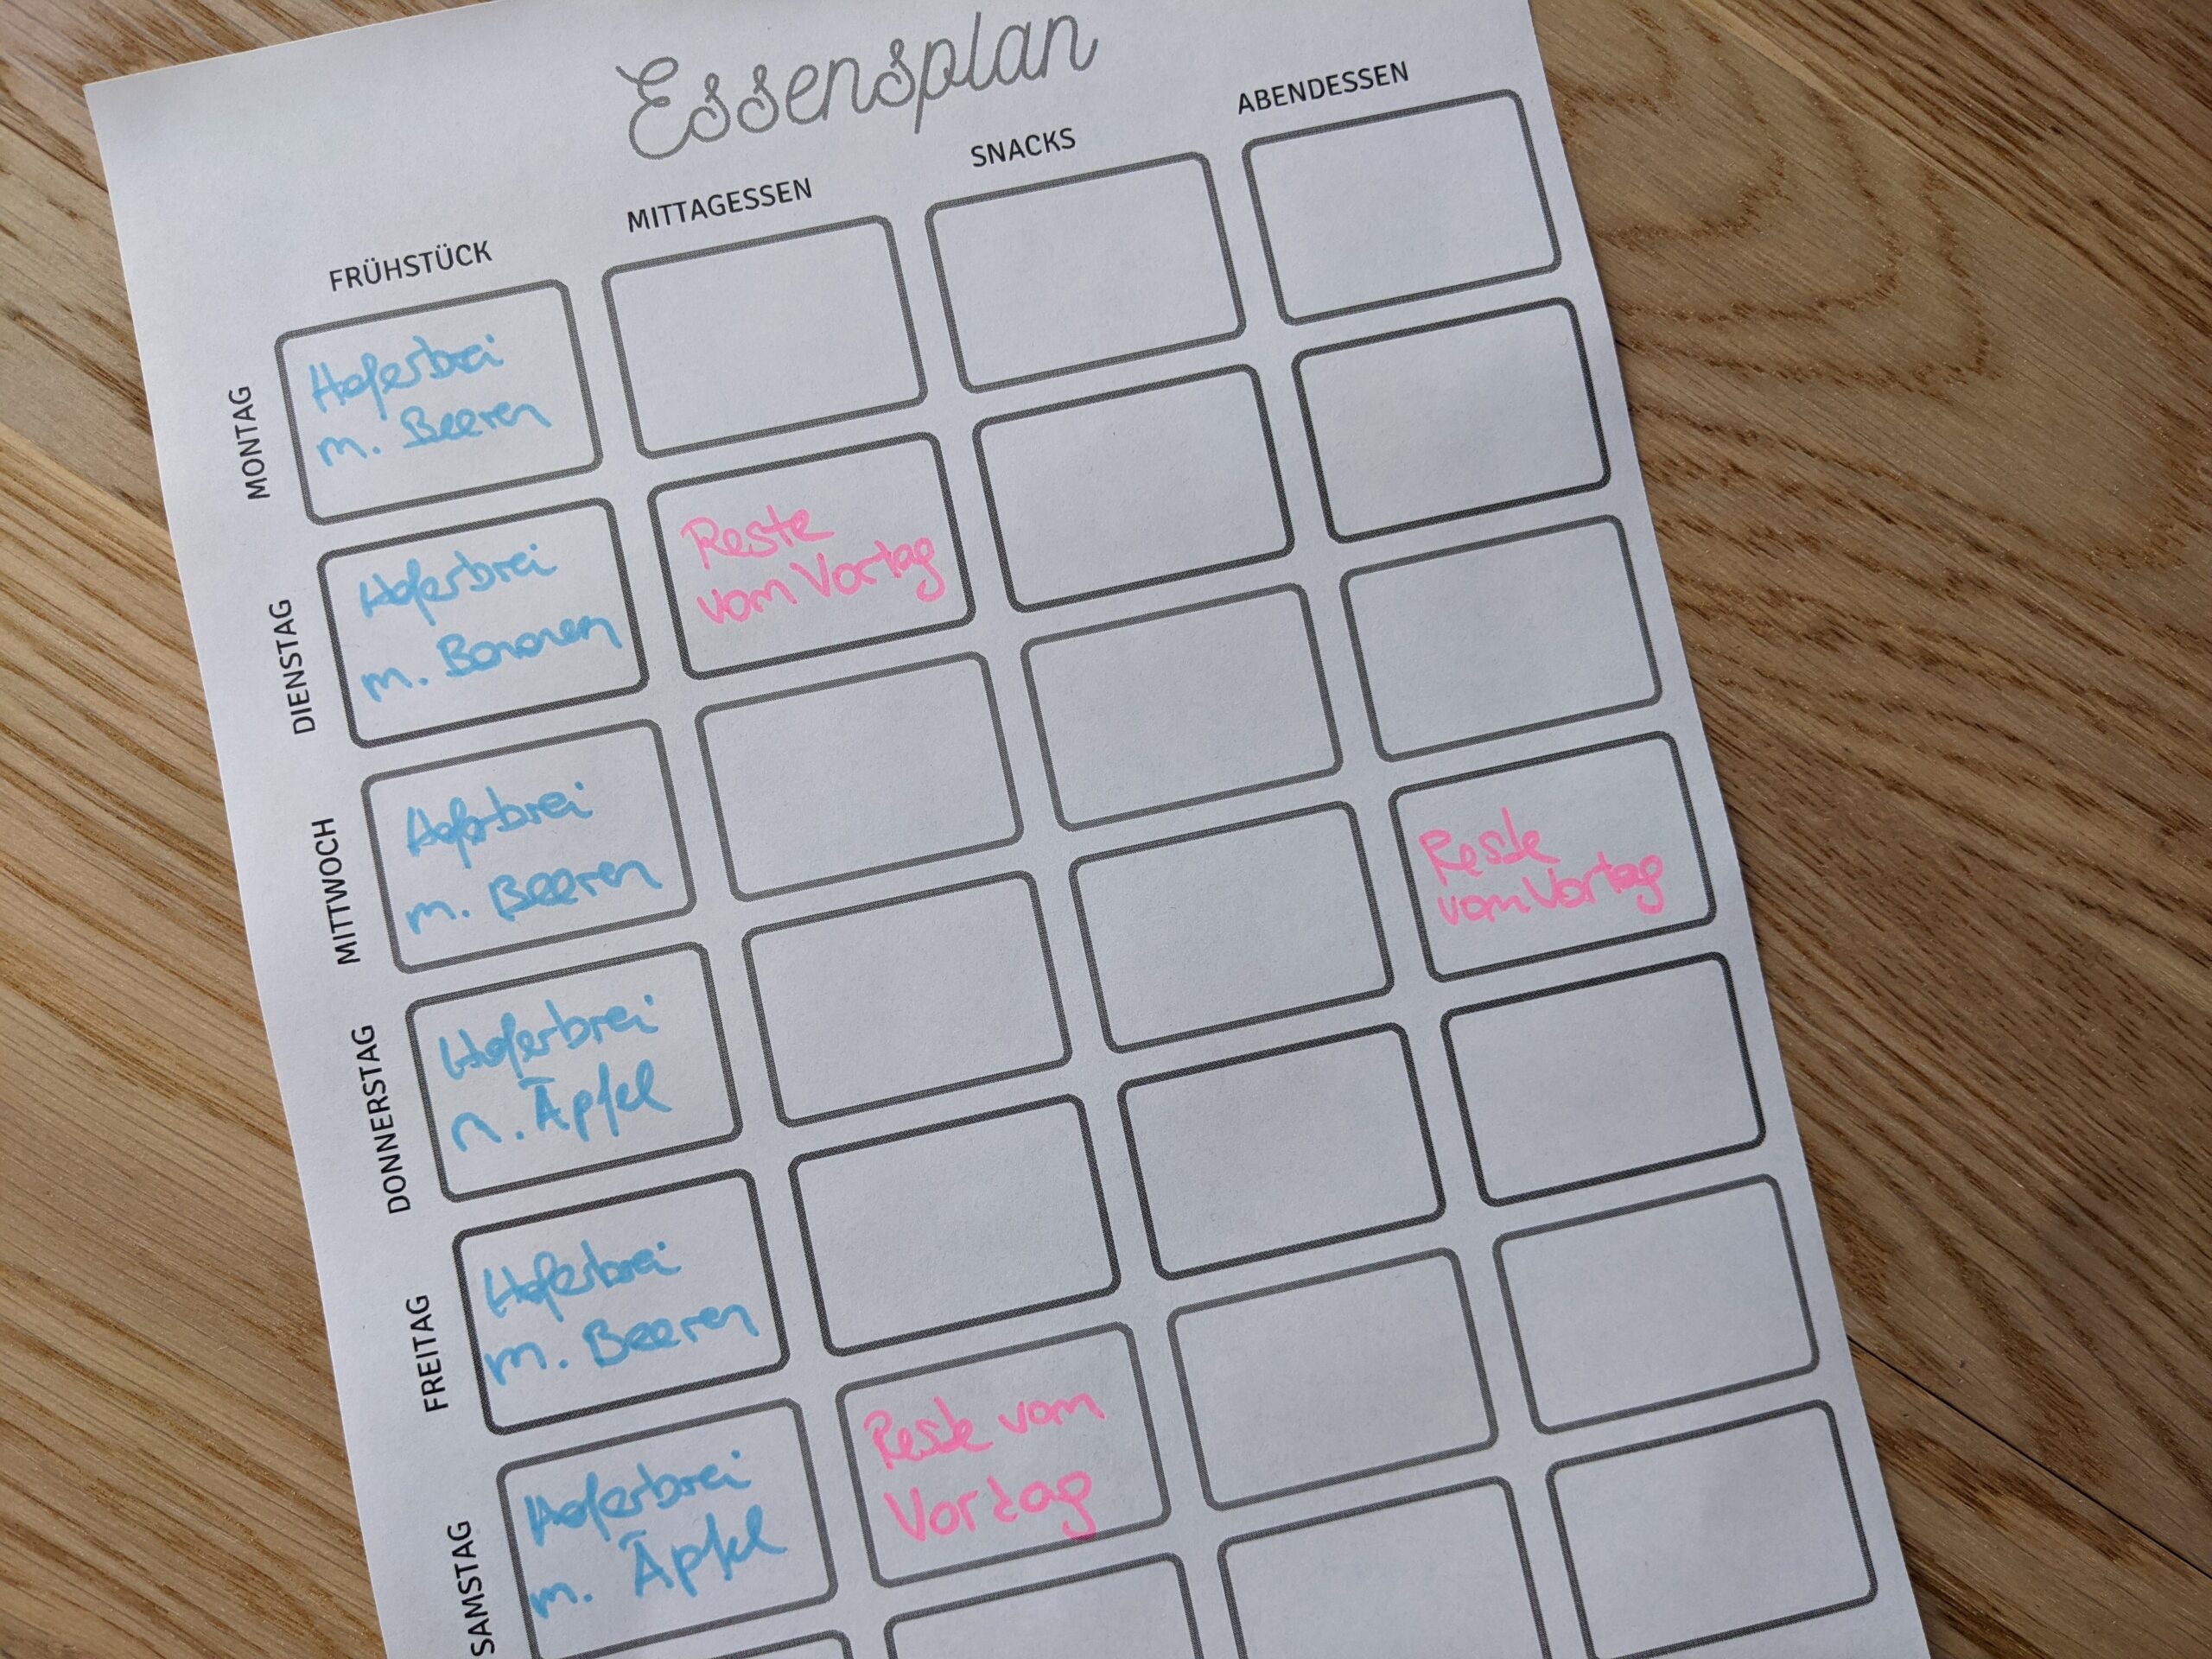 Essensplan
FRÜHSTÜCK
MITTAGESSEN
SNACKS
ABENDESSEN
MONTAG
Haferbrei
m. Beeren
DIENSTAG
Haferbrei
m. Bananen
Reste
vom Vortag
MITTWOCH
Haferbrei
m. Beeren
DONNERSTAG
Haferbrei
m. Äpfel
Reste
vom Vortag
FREITAG
Haferbrei
m. Beeren
SAMSTAG
Haferbrei
m. Äpfel
Reste vom
Vortag